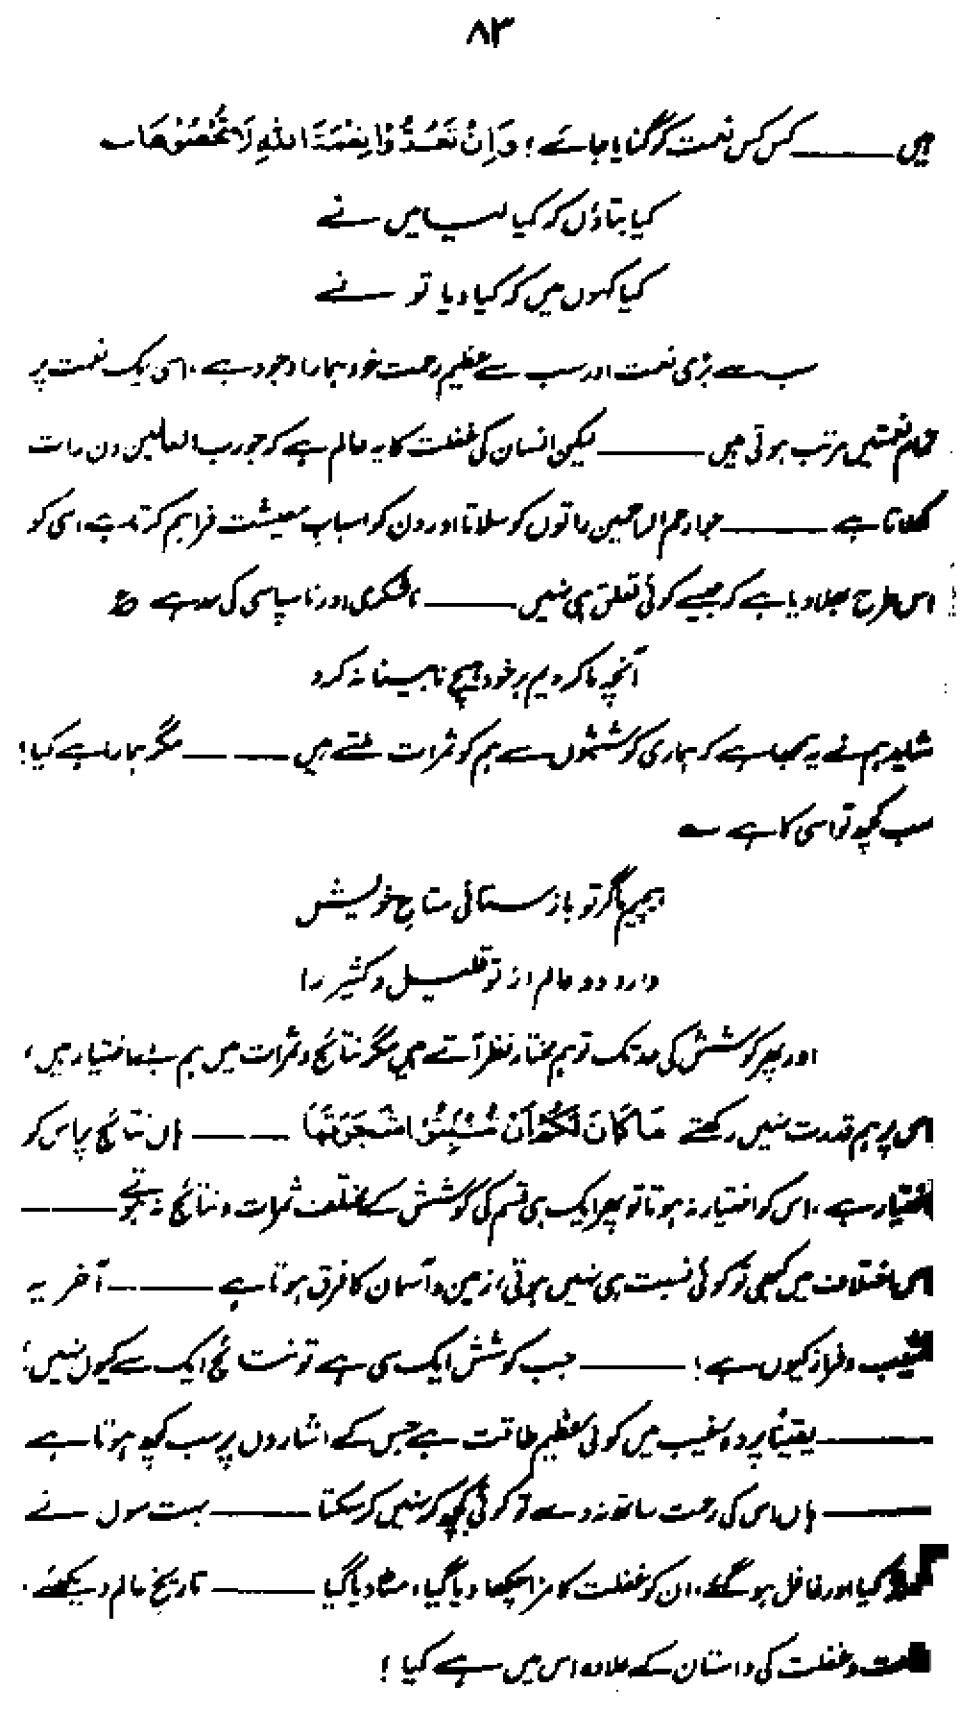 ۸۳
ہیں ——— کس کس نعمت کو گنایا جائے؛ وَاِنْ تَعُدُّوْا نِعْمَۃَ اللّٰہِ لَا تُحْصُوْھَا ؎
کیا بتاؤں کہ کیا لیا میں نے
کیا کہوں میں کہ کیا دیا تو نے
سب سے بڑی نعمت اور سب سے عظیم رحمت خود ہمارا وجود ہے، اسی یک نعمت پر
تمام نعمتیں مرتب ہوتی ہیں ——— لیکن انسان کی غفلت کا یہ عالم ہے کہ جو رب العلمین دن رات
کھلاتا ہے ——— جو ارحم الراحمین راتوں کو سلاتا اور دن کو اسبابِ معیشت فراہم کرتا ہے، اسی کو
اس طرح بھلا دیا ہے کہ جیسے کوئی تعلق ہی نہیں ——— ناشکری اور ناسپاسی کی حد ہے ع
آنچہ ما کردیم بر خود ہیچ نابینا نہ کرد
شاید ہم نے یہ سمجھا ہے کہ ہماری کوششوں سے ہم کو ثمرات ملتے ہیں ——— مگر ہمارا ہے کیا!
سب کچھ تو اسی کا ہے ؎
بیچیم ما گر تو باز ستانی متاعِ خویش
دارد دو عالم از تو قلیل و کثیر را
اور پھر کوشش کی حد تک تو ہم مختار نظر آتے ہیں مگر نتائج و ثمرات میں ہم بے اختیار ہیں،
اس پر ہم قدرت نہیں رکھتے مَا کَانَ لَکُمْ اَنْ تُنْبِتُوْا شَجَرَھَا ——— ہاں نتائج پر اس کو
اختیار ہے، اس کو اختیار نہ ہوتا تو پھر ایک ہی قسم کی کوشش کے مختلف ثمرات و نتائج نہ ہوتے ———
اس اختلاف میں کبھی تو کوئی نسبت ہی نہیں ہوتی، زمین و آسمان کا فرق ہوتا ہے ——— آخر یہ
نشیب و فراز کیوں ہے؟ ——— جب کوشش ایک سی ہے تو نتائج ایک سے کیوں نہیں؟
——— یقیناً پردۂ غیب میں کوئی عظیم طاقت ہے جس کے اشاروں پر سب کچھ ہوتا ہے
——— ہاں اس کی رحمت ساتھ نہ دے تو کوئی کچھ کر نہیں کر سکتا ——— بہت سوں نے
کیا اور غافل ہو گئے، ان کو غفلت کا مزا چکھا دیا گیا، مٹا دیا گیا ——— تاریخِ عالم دیکھئے،
و غفلت کی داستان کے علاوہ اس میں ہے کیا!